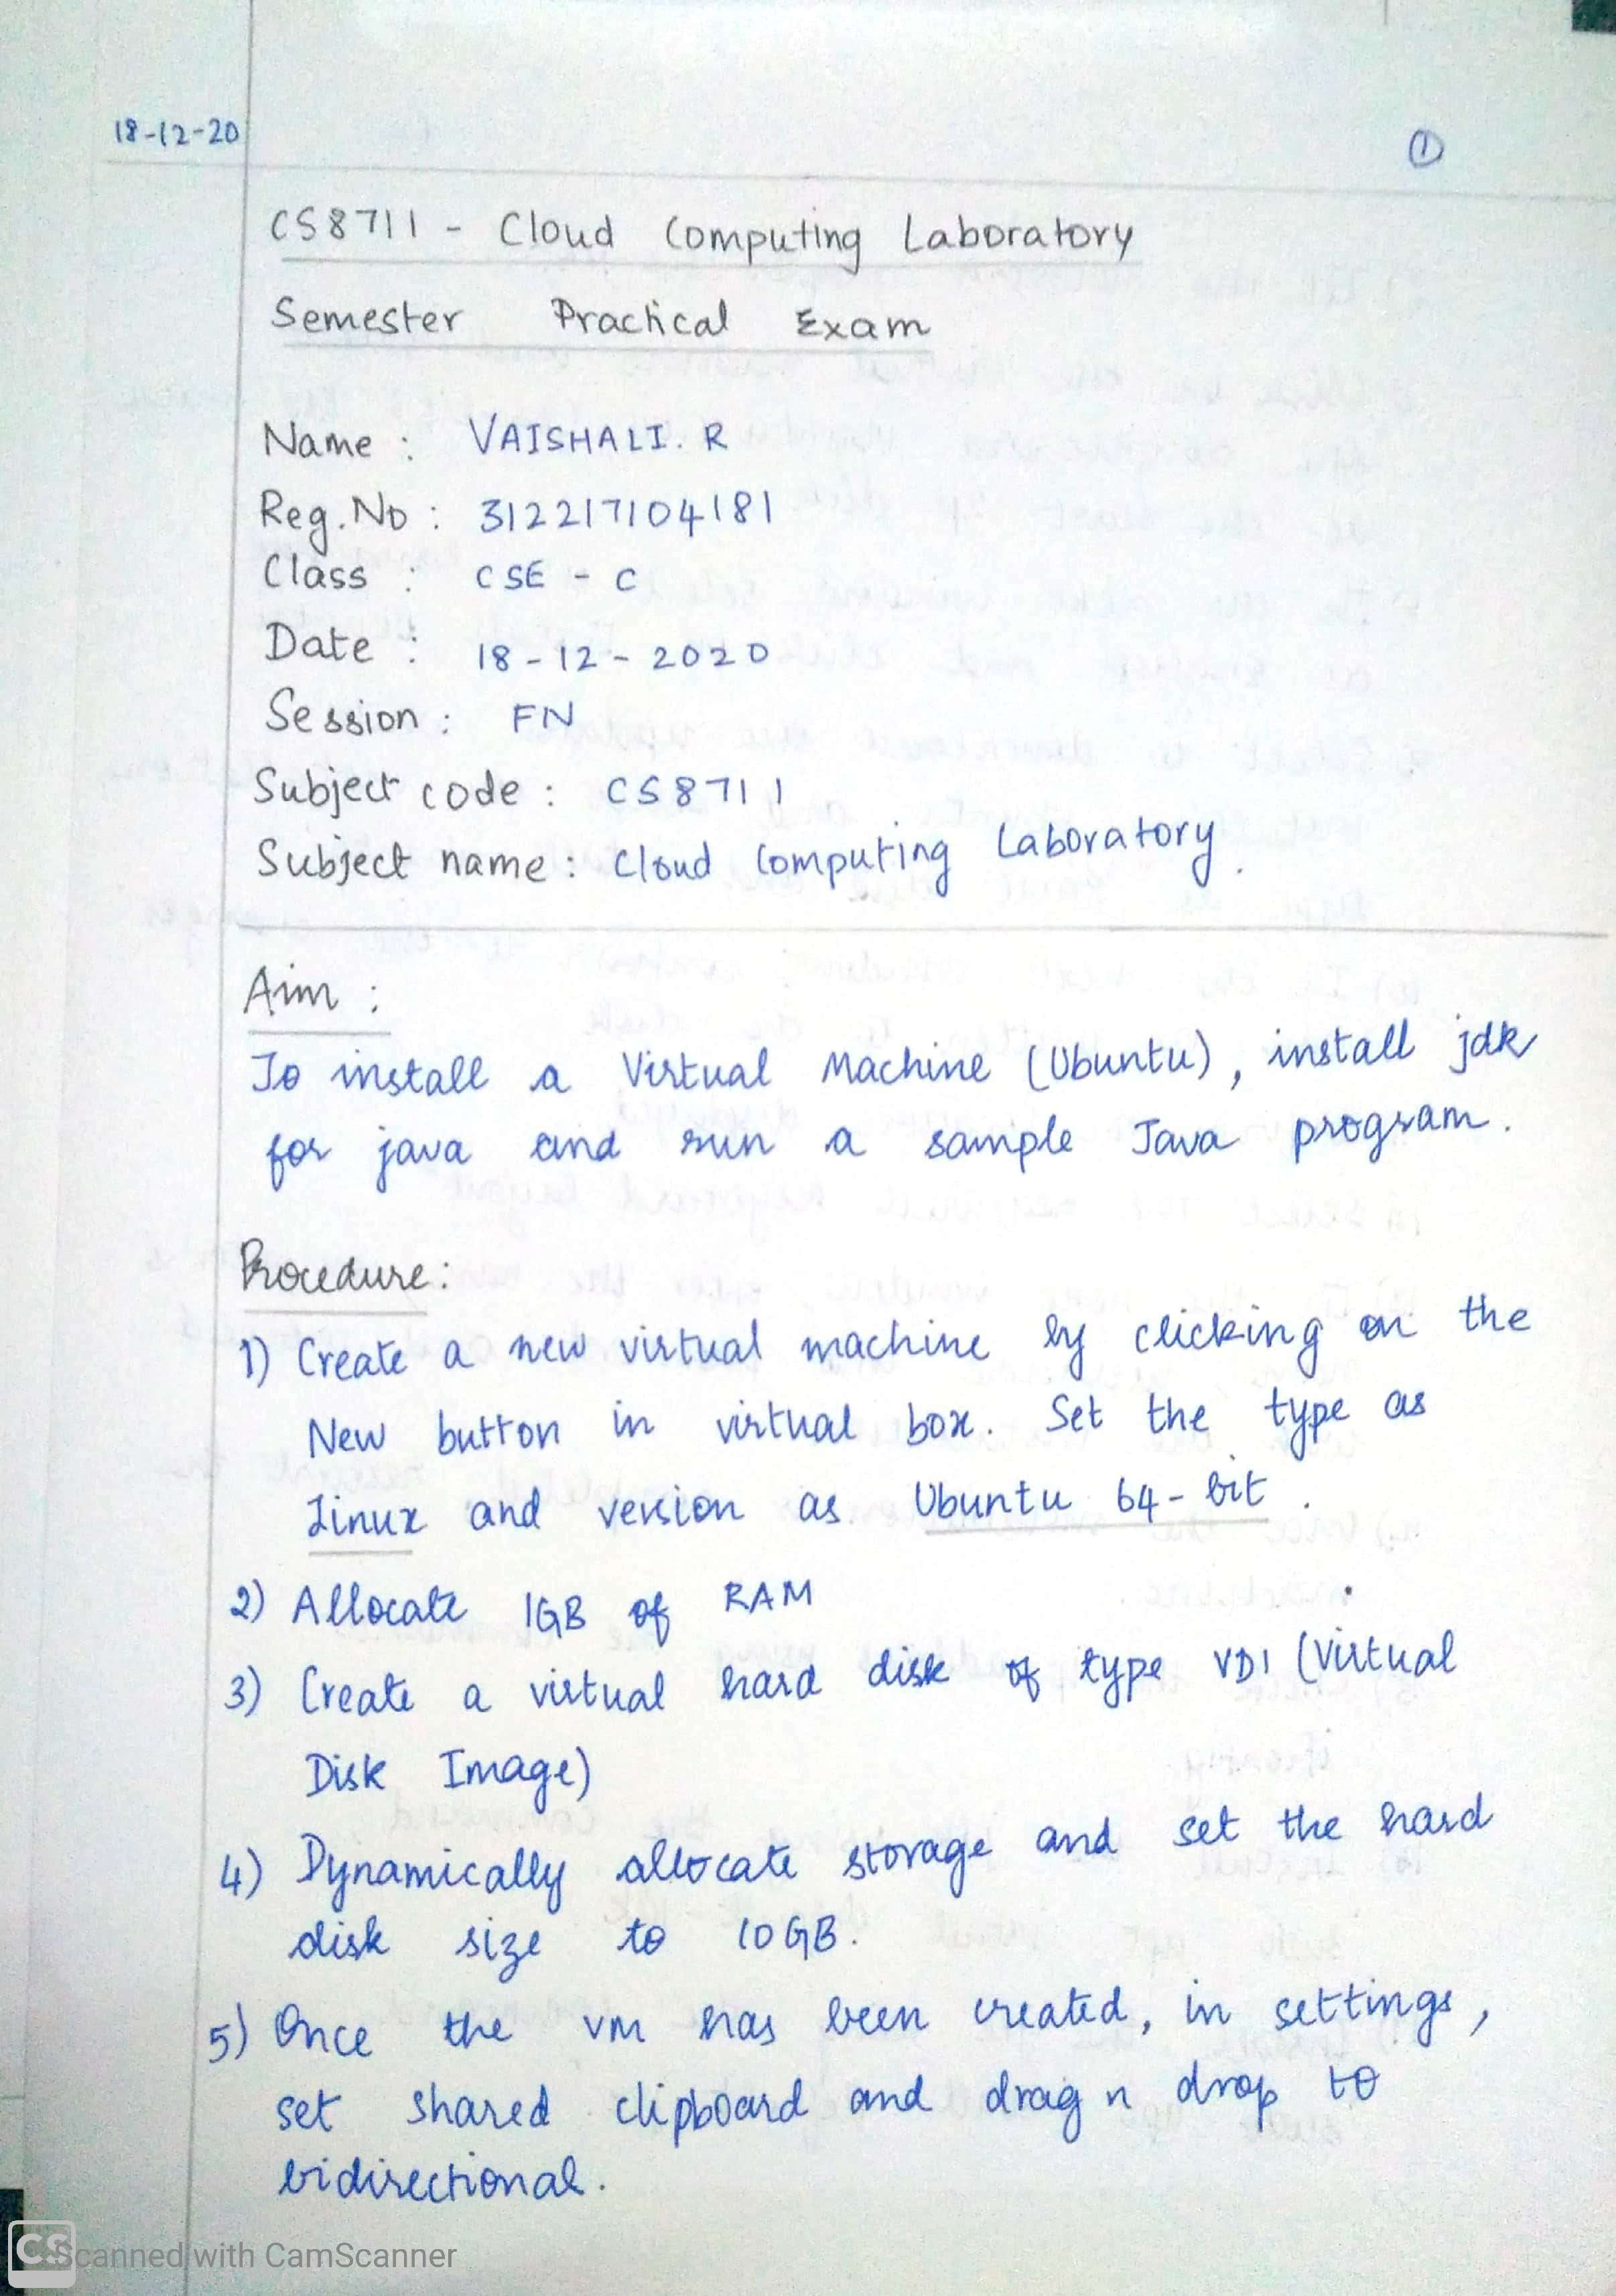 18-12-20
1
CS8711 - Cloud Computing Laboratory
Semester Practical Exam
Name : VAISHALI. R
Reg.No : 312217104181
Class : CSE - C
Date : 18-12-2020
Session : FN
Subject code : CS8711
Subject name : Cloud Computing Laboratory.
Aim :
To install a Virtual Machine (Ubuntu), install jdk
for java and run a sample Java program.
Procedure:
1) Create a new virtual machine by clicking on the
New button in virtual box. Set the type as
Linux and version as Ubuntu 64-bit.
2) Allocate 1GB of RAM
3) Create a virtual hard disk of type VDI (Virtual
Disk Image)
4) Dynamically allocate storage and set the hard
disk size to 10GB.
5) Once the VM has been created, in settings,
set shared clipboard and drag n drop to
bidirectional.
CS Scanned with CamScanner